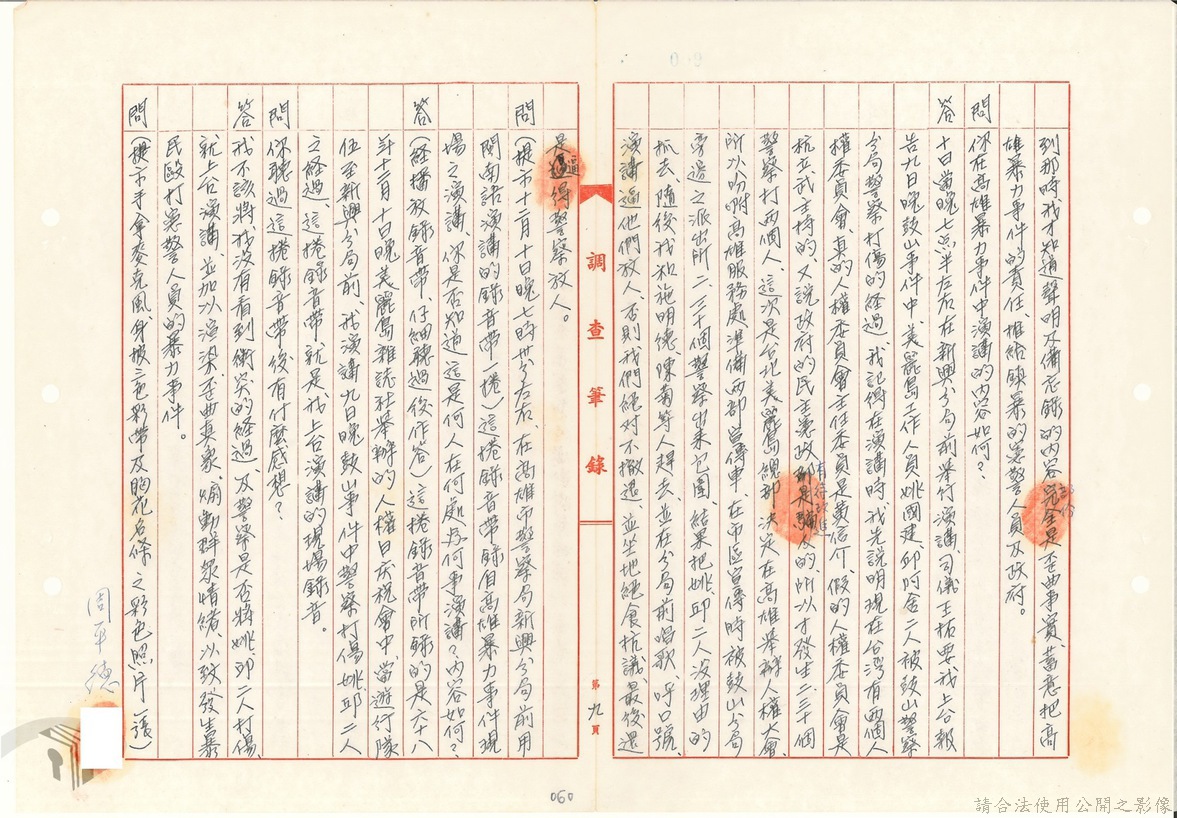 到那時,我才知道聲明及備忘錄的內容部份是歪曲事實、蓄意把高
雄暴力事件的責任、推給鎮暴的憲警人員及政府。
問 你在高雄暴力事件中演講的內容如何?
答 十日當晚七点半左右在新興分局前舉行演講、司儀王拓要我上台報
告九日晚鼓山事件中美麗島工作人員姚國建邱阿舍二人被鼓山警察
分局警察打傷的經過、我記得在演講時我先說明現在台灣有兩個人
權委員會、真的人權委員會主任委員是黃信介、假的人權委員會是
杭立武主持的、又說政府的民主憲政有待改進的、所以才發生二、三十個
警察打兩個人、這次是台北美麗島總部決定在高雄舉辦人權大會、
所以吩咐高雄服務處準備兩部宣傳車、在市區宣傳時被鼓山分局
旁邊之派出所二、三十個警察出來包圍、結果把姚、邱二人沒理由的
抓去、隨後我和施明德、陳菊等人趕去、並在分局前唱歌、呼口號、
演講逼他們放人、否則我們絕對不撤退、並坐地絕食抗議、最後還
調查筆錄
第九頁
是逼得警察放人。
問 (提示十二月十日晚七時卅分左右、在高雄市警察局新興分局前用
閩南話演講的錄音帶一捲)這捲錄音帶錄自高雄暴力事件現
場之演講、你是否知道這是何人在何處為何事演講?內容如何?
答 (經播放錄音帶、仔細聽過後作答)這捲錄音帶所錄的是六十八
年十二月十日晚美麗島雜誌社舉辦的人權日慶祝會中、當遊行隊
伍至新興分局前、我演講九日晚鼓山事件中警察打傷姚邱二人
之經過、這捲錄音帶就是我上台演講的現場錄音。
問 你聽過這捲錄音帶後有什麼感想?
答 我不該將我沒有看到衝突的經過、及警察是否將姚、邱二人打傷、
就上台演講、並加以渲染歪曲真象、煽動群眾情緒、以致發生暴
民毆打憲警人員的暴力事件。
問 (提示手拿麥克風、身披三色彩帶及胸花名條之彩色照片一張)
周平德
060
請合法使用公開之影像